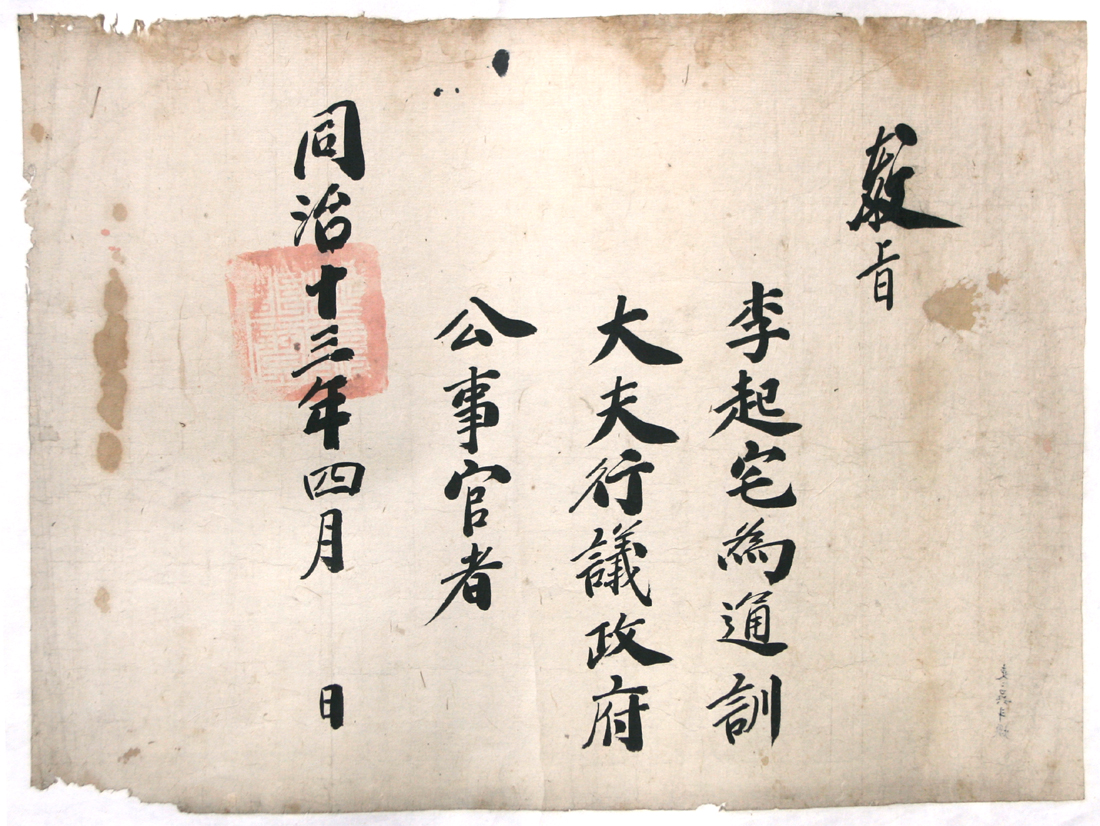 敎旨
李起宅爲通訓
大夫行議政府
公事官者
同治十三年四月 日